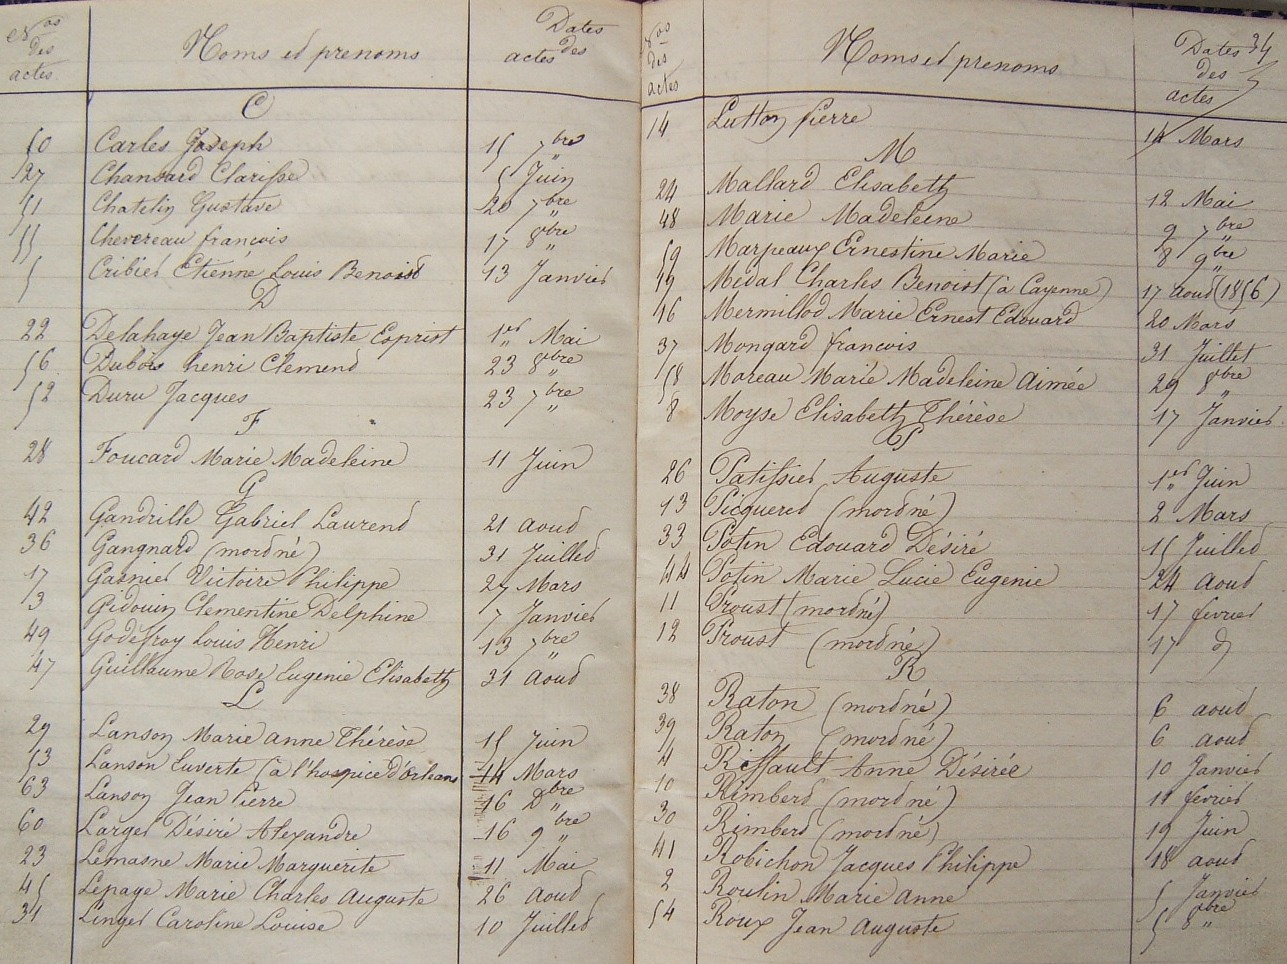 Nos des actes Noms et prenoms Dates des actes
C
50 Carles Joseph 15 7bre
27 Chansard Clarisse 5 Juin
51 Chatelin Gustave 20 7bre
55 Chevereau francois 17 8bre
5 Cribier Etienne Louis Benoist 13 Janvier
D
22 Delahaye Jean Baptiste Esprist 1er Mai
56 Dubois henri Clement 23 8bre
52 Duru Jacques 23 7bre
F
28 Foucard Marie Madeleine 11 Juin
G
42 Gandrille Gabriel Laurent 21 aout
36 Gangnard (mort né) 31 Juillet
17 Garnier Victoire Philippe 27 Mars
3 Gidouin Clementine Delphine 7 Janvier
49 Godeffroy Louis Henri 13 7bre
47 Guillaume Rose Eugenie Elisabeth 31 Aout
L
29 Lanson Marie anne Thérèse 15 Juin
53 Lanson Euverte (à l'hospice d'Orleans 14 Mars
63 Lanson Jean Pierre 16 Dbre
60 Larger Désiré Alexandre 16 9bre
23 Lemasne Marie Marguerite 11 Mai
45 Lepage Marie Charles Auguste 26 aout
31 Linger Caroline Louise 10 Juillet
34
Nos des actes Noms et prenoms Dates des actes
14 Lutton pierre 14 Mars
M
24 Mallard Elisabeth 12 Mai
48 Marie Madeleine 9 7bre
59 Marpeaux Ernestine Marie 8 9bre
19 Medal Charles Benoist (à Cayenne) 17 Aout (1856)
16 Mermillod Marie Ernest Edouard 20 Mars
37 Mongard francois 31 Juillet
58 Moreau Marie Madeleine Aimée 29 8bre
8 Moyse Elisabeth Thérèse 17 Janvier
P
26 Patissier Auguste 1er Juin
13 Picqueret (mort né) 2 Mars
33 Potin Edouard Désiré 15 Juillet
44 Potin Marie Lucie Eugenie 24 aout
11 Proust (mort né) 17 fevrier
12 Proust (mort né) 17 d
R
38 Raton (mort né) 6 aout
39 Raton (mort né) 6 aout
4 Riffault Anne Désirée 10 Janvier
10 Rimbert (mort né) 11 fevrier
30 Rimbert (mort né) 19 Juin
41 Robichon Jacques Philippe 18 aout
2 Roulin Marie Anne 5 Janvier
54 Roux Jean Auguste 5 8bre